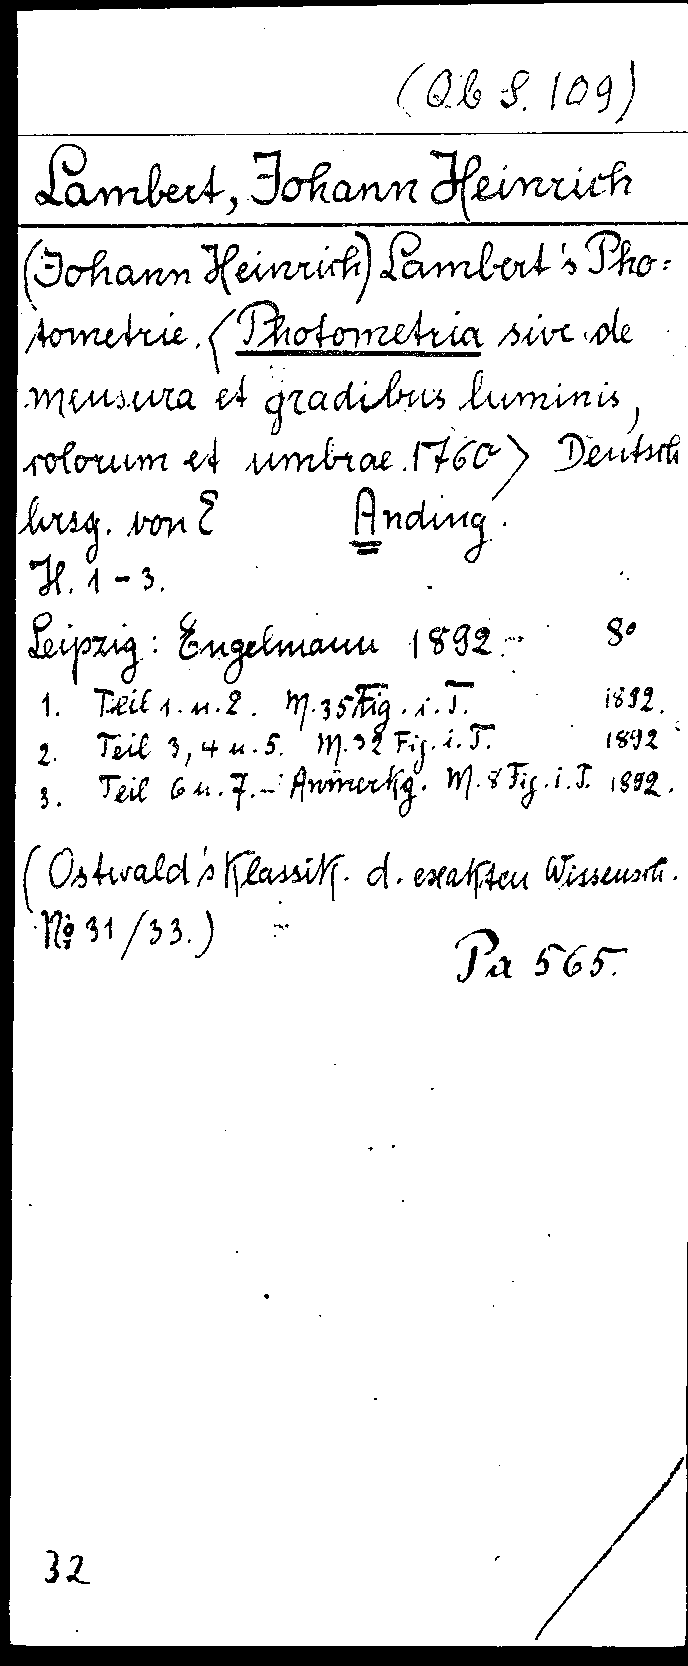 (Qb S. 109)
Lambert, Johann Heinrich
(Johann Heinrich) Lambert's Pho=
tometrie. <Photometria sive de
mensura et gradibus luminis,
colorum et umbrae. 1760> Deutsch
hrsg. von E Anding.
H. 1-3.
Leipzig: Engelmann 1892.- 8°
1. Teil 1. u. 2. M. 35 Fig. i. T. 1892.
2. Teil 3, 4 u. 5. M. 32 Fig. i. T. 1892
3. Teil 6 u. 7. - Anmerkg. M. 8 Fig. i. T. 1892.
(Ostwald's Klassik. d. exakten Wissensch.
No 31/33.)
Pa 565.
32